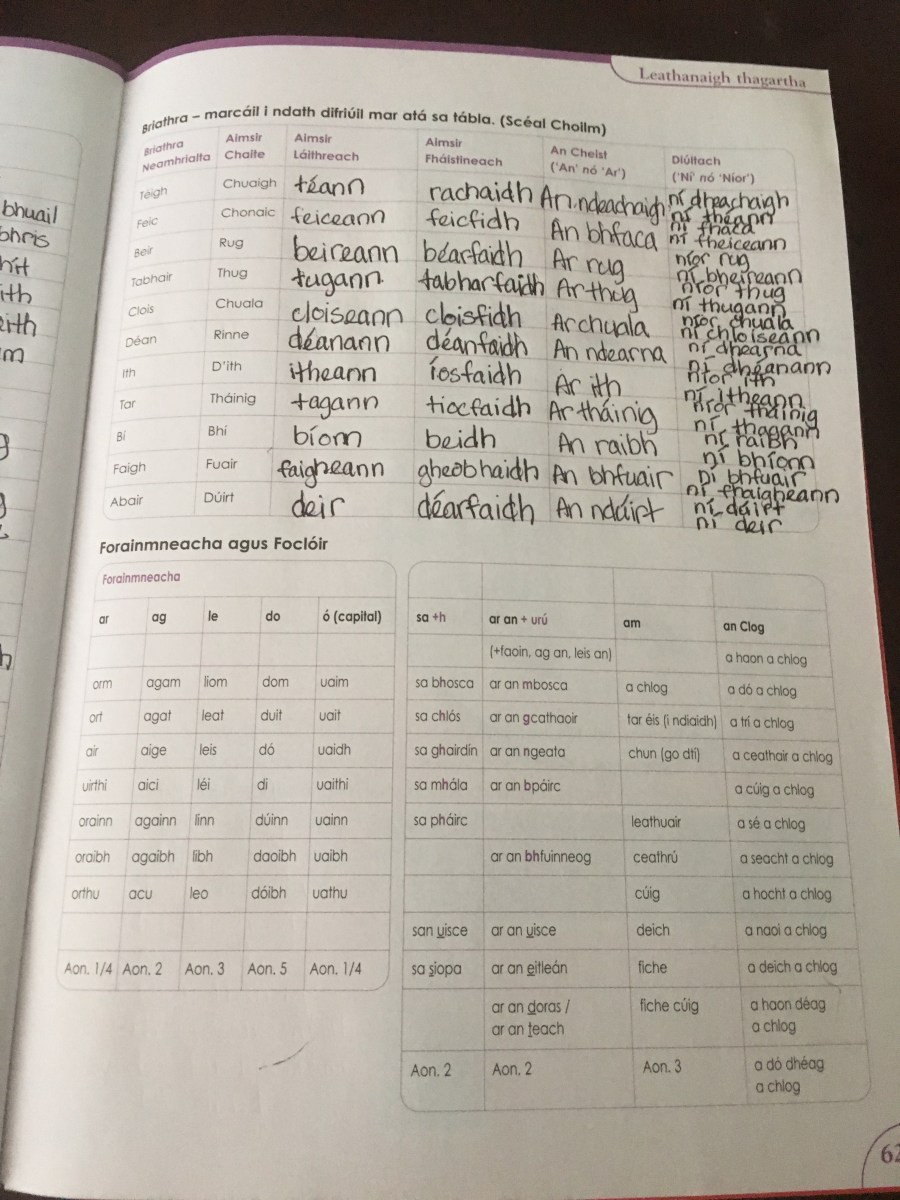 Leathanaigh thagartha
Briathra – marcáil i ndath difriúil mar atá sa tábla. (Scéal Chollm)
Briathra Neamhrialta Aimsir Chaite Aimsir Láithreach Aimsir Fháistineach An Cheist ('An' nó 'Ar') Diúltach ('Ní' nó 'Níor')
Téigh Chuaigh téann rachaidh An ndeachaigh ní dheachaigh ní théann
Feic Chonaic feiceann feicfidh An bhfaca ní fhaca ní fheiceann
Beir Rug beireann béarfaidh Ar rug níor rug ní bheireann
Tabhair Thug tugann tabharfaidh Ar thug níor thug ní thugann
Clois Chuala cloiseann cloisfidh Ar chuala níor chuala ní chloiseann
Déan Rinne déanann déanfaidh An ndearna ní dhearna ní dhéanann
Ith D'ith itheann íosfaidh Ar ith níor ith ní itheann
Tar Tháinig tagann tiocfaidh Ar tháinig níor tháinig ní thagann
Bí Bhí bíonn beidh An raibh ní raibh ní bhíonn
Faigh Fuair faigheann gheobhaidh An bhfuair ní bhfuair ní fhaigheann
Abair Dúirt deir déarfaidh An ndúirt ní dúirt ní deir
bhuail
bhris
ith
Forainmneacha agus Foclóir
Forainmneacha
ar ag le do ó (capital)
orm agam liom dom uaim
ort agat leat duit uait
air aige leis dó uaidh
uirthi aici léi di uaithi
orainn againn linn dúinn uainn
oraibh agaibh libh daoibh uaibh
orthu acu leo dóibh uathu
Aon. 1/4 Aon. 2 Aon. 3 Aon. 5 Aon. 1/4
sa +h ar an + urú am an Clog
(+faoin, ag an, leis an) a haon a chlog
sa bhosca ar an mbosca a chlog a dó a chlog
sa chlós ar an gcathaoir tar éis (i ndiaidh) a trí a chlog
sa ghairdín ar an ngeata chun (go dtí) a ceathair a chlog
sa mhála ar an bpáirc a cúig a chlog
sa pháirc leathuair a sé a chlog
ar an bhfuinneog ceathrú a seacht a chlog
cúig a hocht a chlog
san uisce ar an uisce deich a naoi a chlog
sa siopa ar an eitleán fiche a deich a chlog
ar an doras / ar an teach fiche cúig a haon déag a chlog
Aon. 2 Aon. 2 Aon. 3 a dó dhéag a chlog